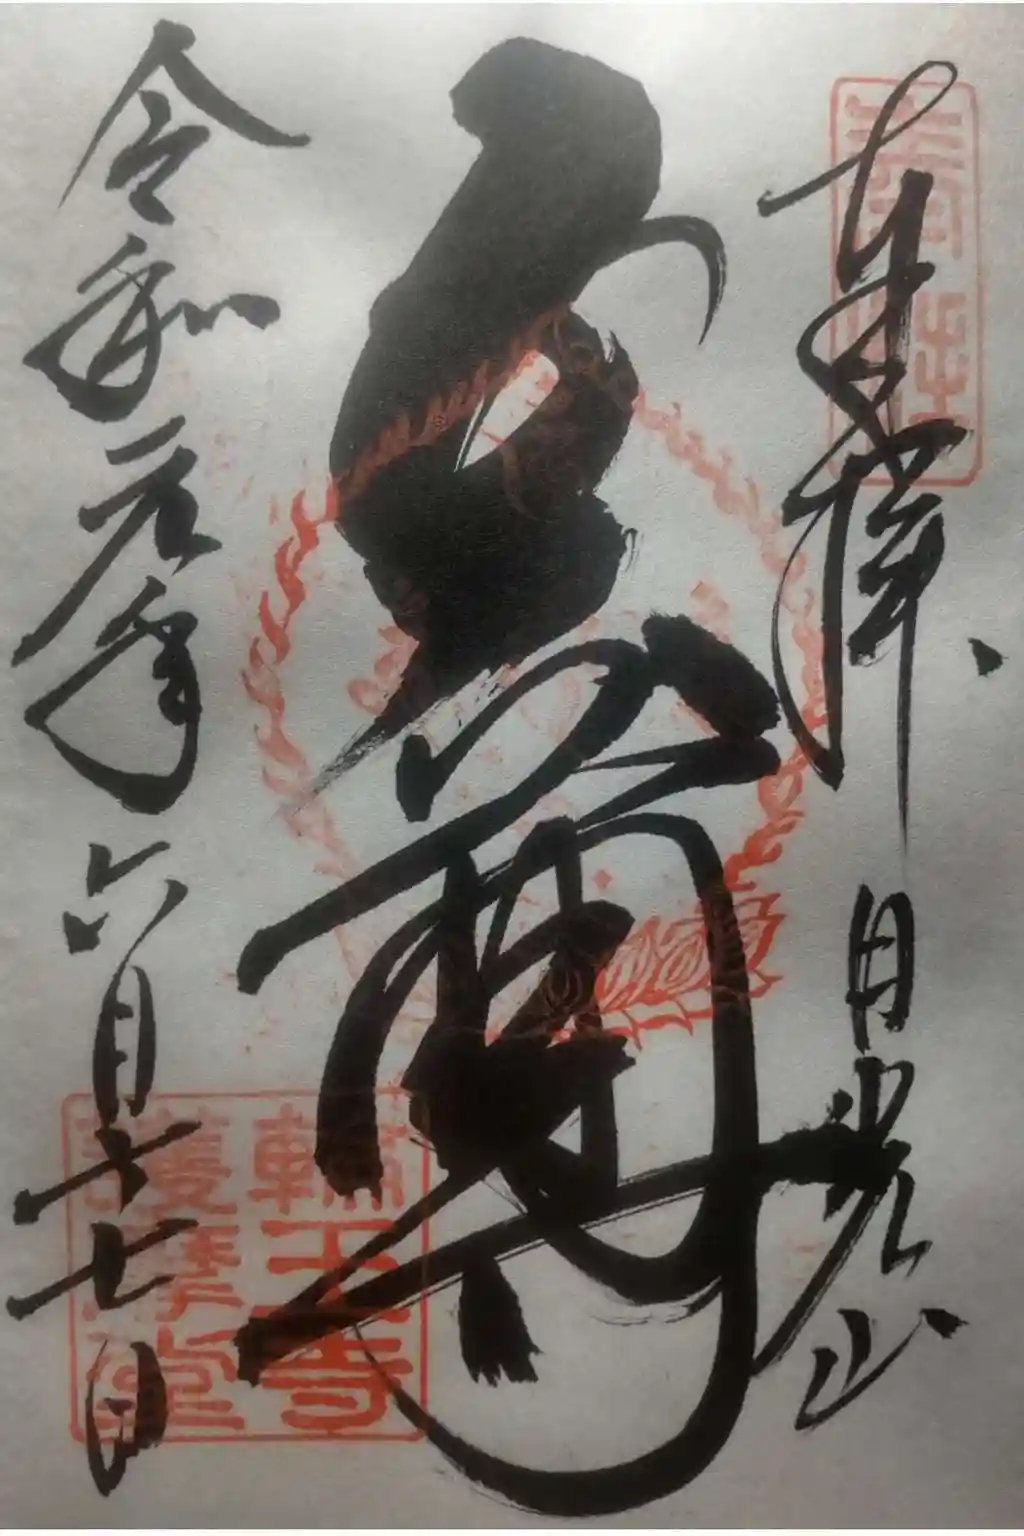 奉拝
日光山
五大尊
令和元年六月十七日
輪王寺
護摩堂